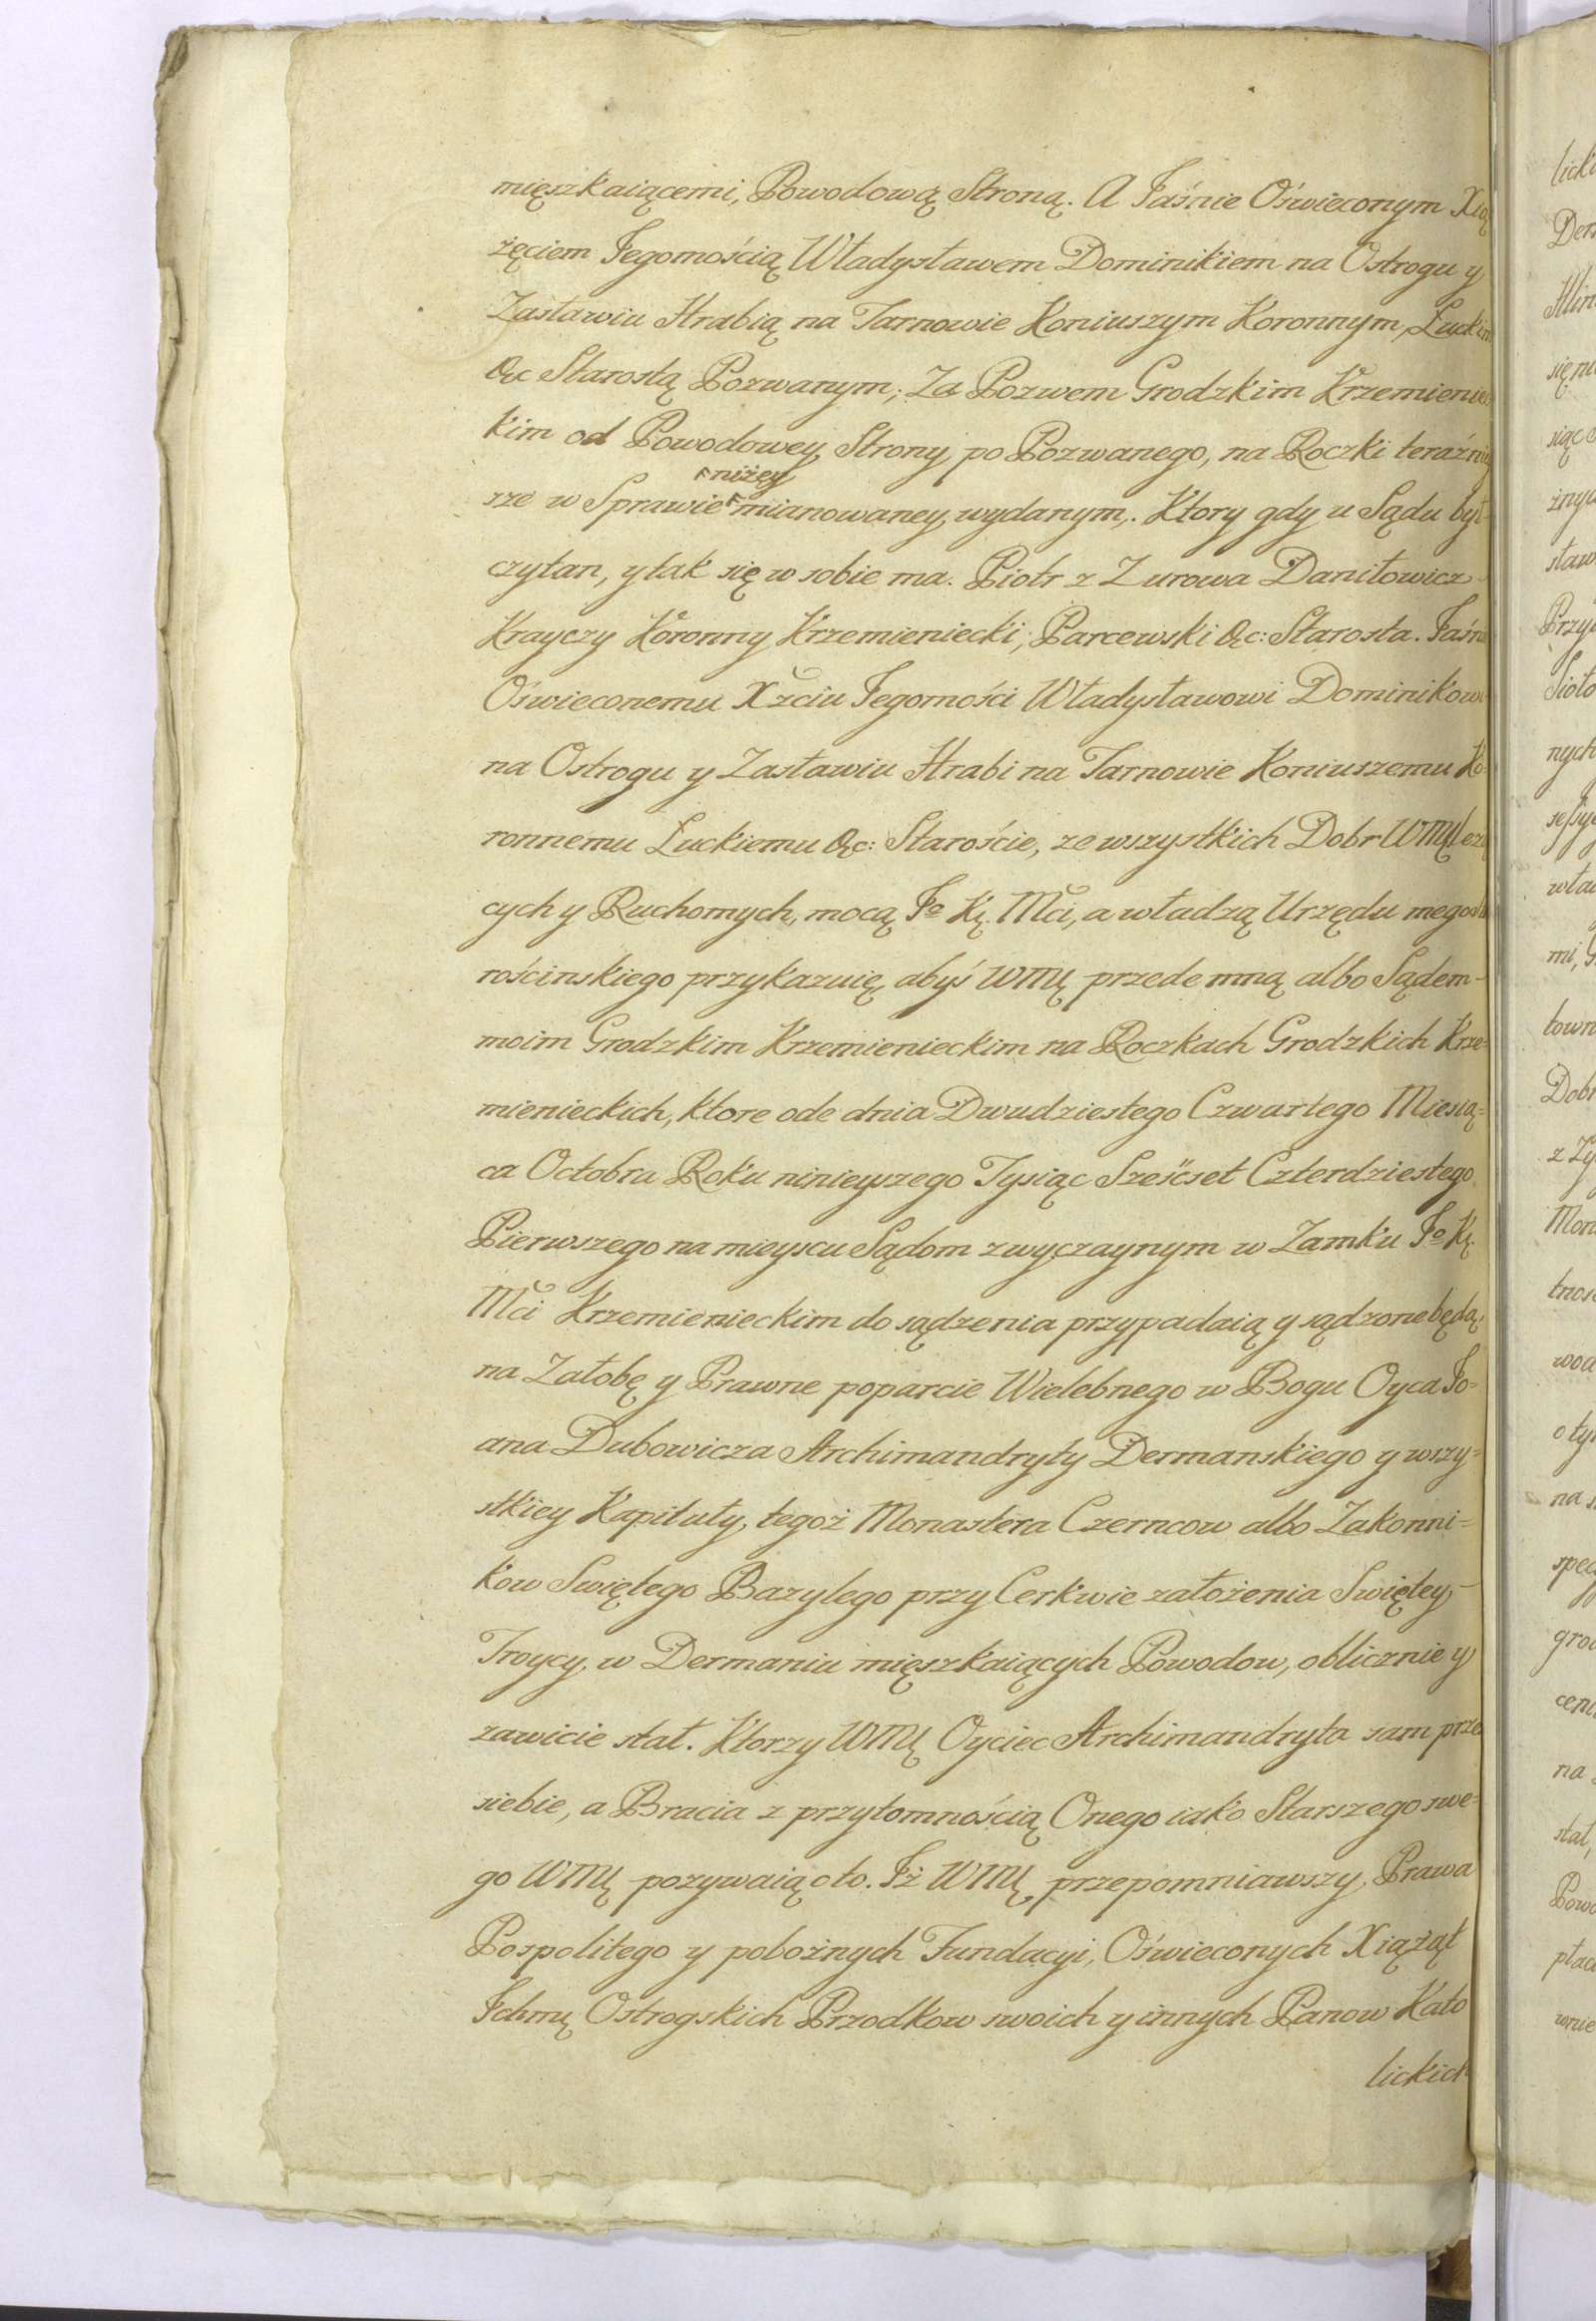 mięszkaiącemi, Powodową Stroną. A Jaśnie Oświeconym Xią
żęciem Jegomością Władysławem Dominikiem na Ostrogu y
Zasławiu Hrabią na Tarnowie Koniuszym Koronnym, Luckim
&c Starostą Pozwanym; Za Pozwem Grodzkim Krzemienie
kim od Powodowey Strony po Pozwanego, na Roczki teraźniy
niżey
sze w Sprawie mianowaney, wydanym,. Ktory gdy u Sądu był
czytan, y tak się w sobie ma. Piotr z Zurowa Daniłowicz
Krayczy Koronny Krzemieniecki, Parcewski &c: Starosta. Jaśnie
Oświeconemu Xżciu Jegomości Władysławowi Dominikowi
na Ostrogu y Zasławiu Hrabi na Tarnowie Koniuszemu Ko-
ronnemu Luckiemu &c: Staroście, ze wszystkich Dobr WMę leżą
cych y Ruchomych, mocą Jo Kę. Mci, a władzą Urzędu mego sta
rościnskiego przykazuię, abyś WMę przede mną albo Sądem-
moim Grodzkim Krzemienieckim na Roczkach Grodzkich Krze-
mienieckich, ktore ode dnia Dwudziestego Czwartego Miesią=
ca Octobra Roku ninieyszego Tysiąc Sześćset Czterdziestego
Pierwszego na mieyscu Sądom zwyczaynym w Zamku Jo Kę.
Mci Krzemienieckim do sądzenia przypadaią y sądzone będą,
na Załobę y Prawne poparcie Wielebnego w Bogu Oyca Jo=
ana Dubowicza Archimandryty Dermanskiego y wszy=
stkiey Kapituły, tegoż Monastera Czerncow albo Zakonni=
kow Swiętego Bazylego przy Cerkwie założenia Swiętey-
Troycy, w Dermaniu mięszkaiących Powodow, oblicznie y
zawicie stał. Ktorzy WMę Oyciec Archimandryta sam prze
siebie, a Bracia z przytomnością Onego iako Starszego swe-
go WMę pozywaią oto. Iż WMę przepomniawszy, Prawa
Pospolitego y pobożnych Fundacyi, Oświeconych Xiążąt
Ichmę Ostrogskich Przodkow swoich y innych Panow Kato
lickich